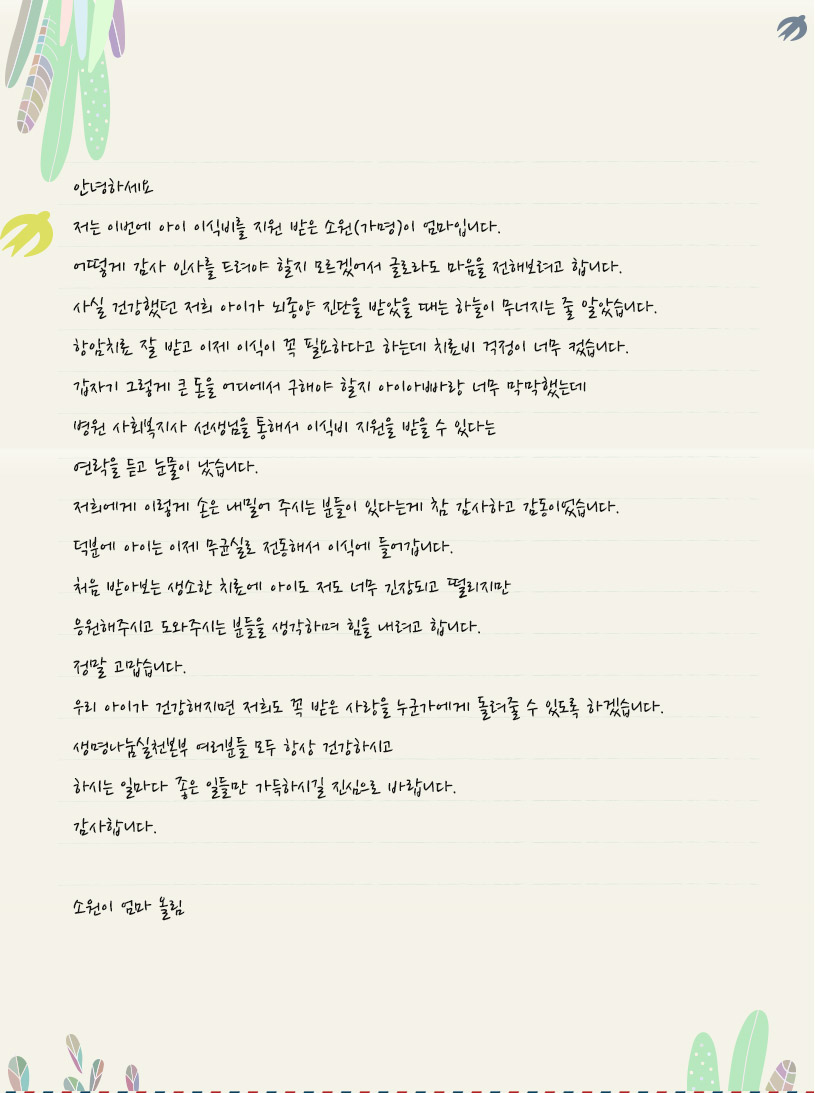 안녕하세요
저는 이번에 아이 이식비를 지원 받은 소원(가명)이 엄마입니다.
어떻게 감사 인사를 드려야 할지 모르겠어서 글로라도 마음을 전해보려고 합니다.
사실 건강했던 저희 아이가 뇌종양 진단을 받았을 때는 하늘이 무너지는 줄 알았습니다.
항암치료 잘 받고 이제 이식이 꼭 필요하다고 하는데 치료비 걱정이 너무 컸습니다.
갑자기 그렇게 큰 돈을 어디에서 구해야 할지 아이아빠랑 너무 막막했는데
병원 사회복지사 선생님을 통해서 이식비 지원을 받을 수 있다는
연락을 듣고 눈물이 났습니다.
저희에게 이렇게 손은 내밀어 주시는 분들이 있다는게 참 감사하고 감동이었습니다.
덕분에 아이는 이제 무균실로 전동해서 이식에 들어갑니다.
처음 받아보는 생소한 치료에 아이도 저도 너무 긴장되고 떨리지만
응원해주시고 도와주시는 분들을 생각하며 힘을 내려고 합니다.
정말 고맙습니다.
우리 아이가 건강해지면 저희도 꼭 받은 사랑을 누군가에게 돌려줄 수 있도록 하겠습니다.
생명나눔실천본부 여러분들 모두 항상 건강하시고
하시는 일마다 좋은 일들만 가득하시길 진심으로 바랍니다.
감사합니다.
소원이 엄마 올림